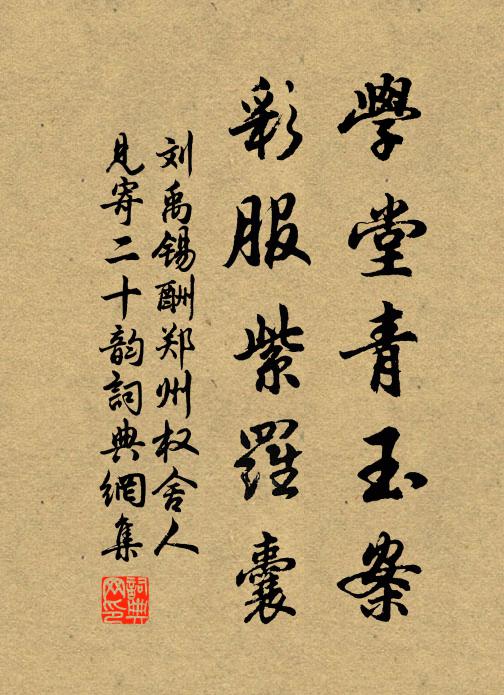 學堂青玉案
彩服紫羅囊
刘禹锡酬郑州权舍人
見寄二十韵詞典網集
詞典网印